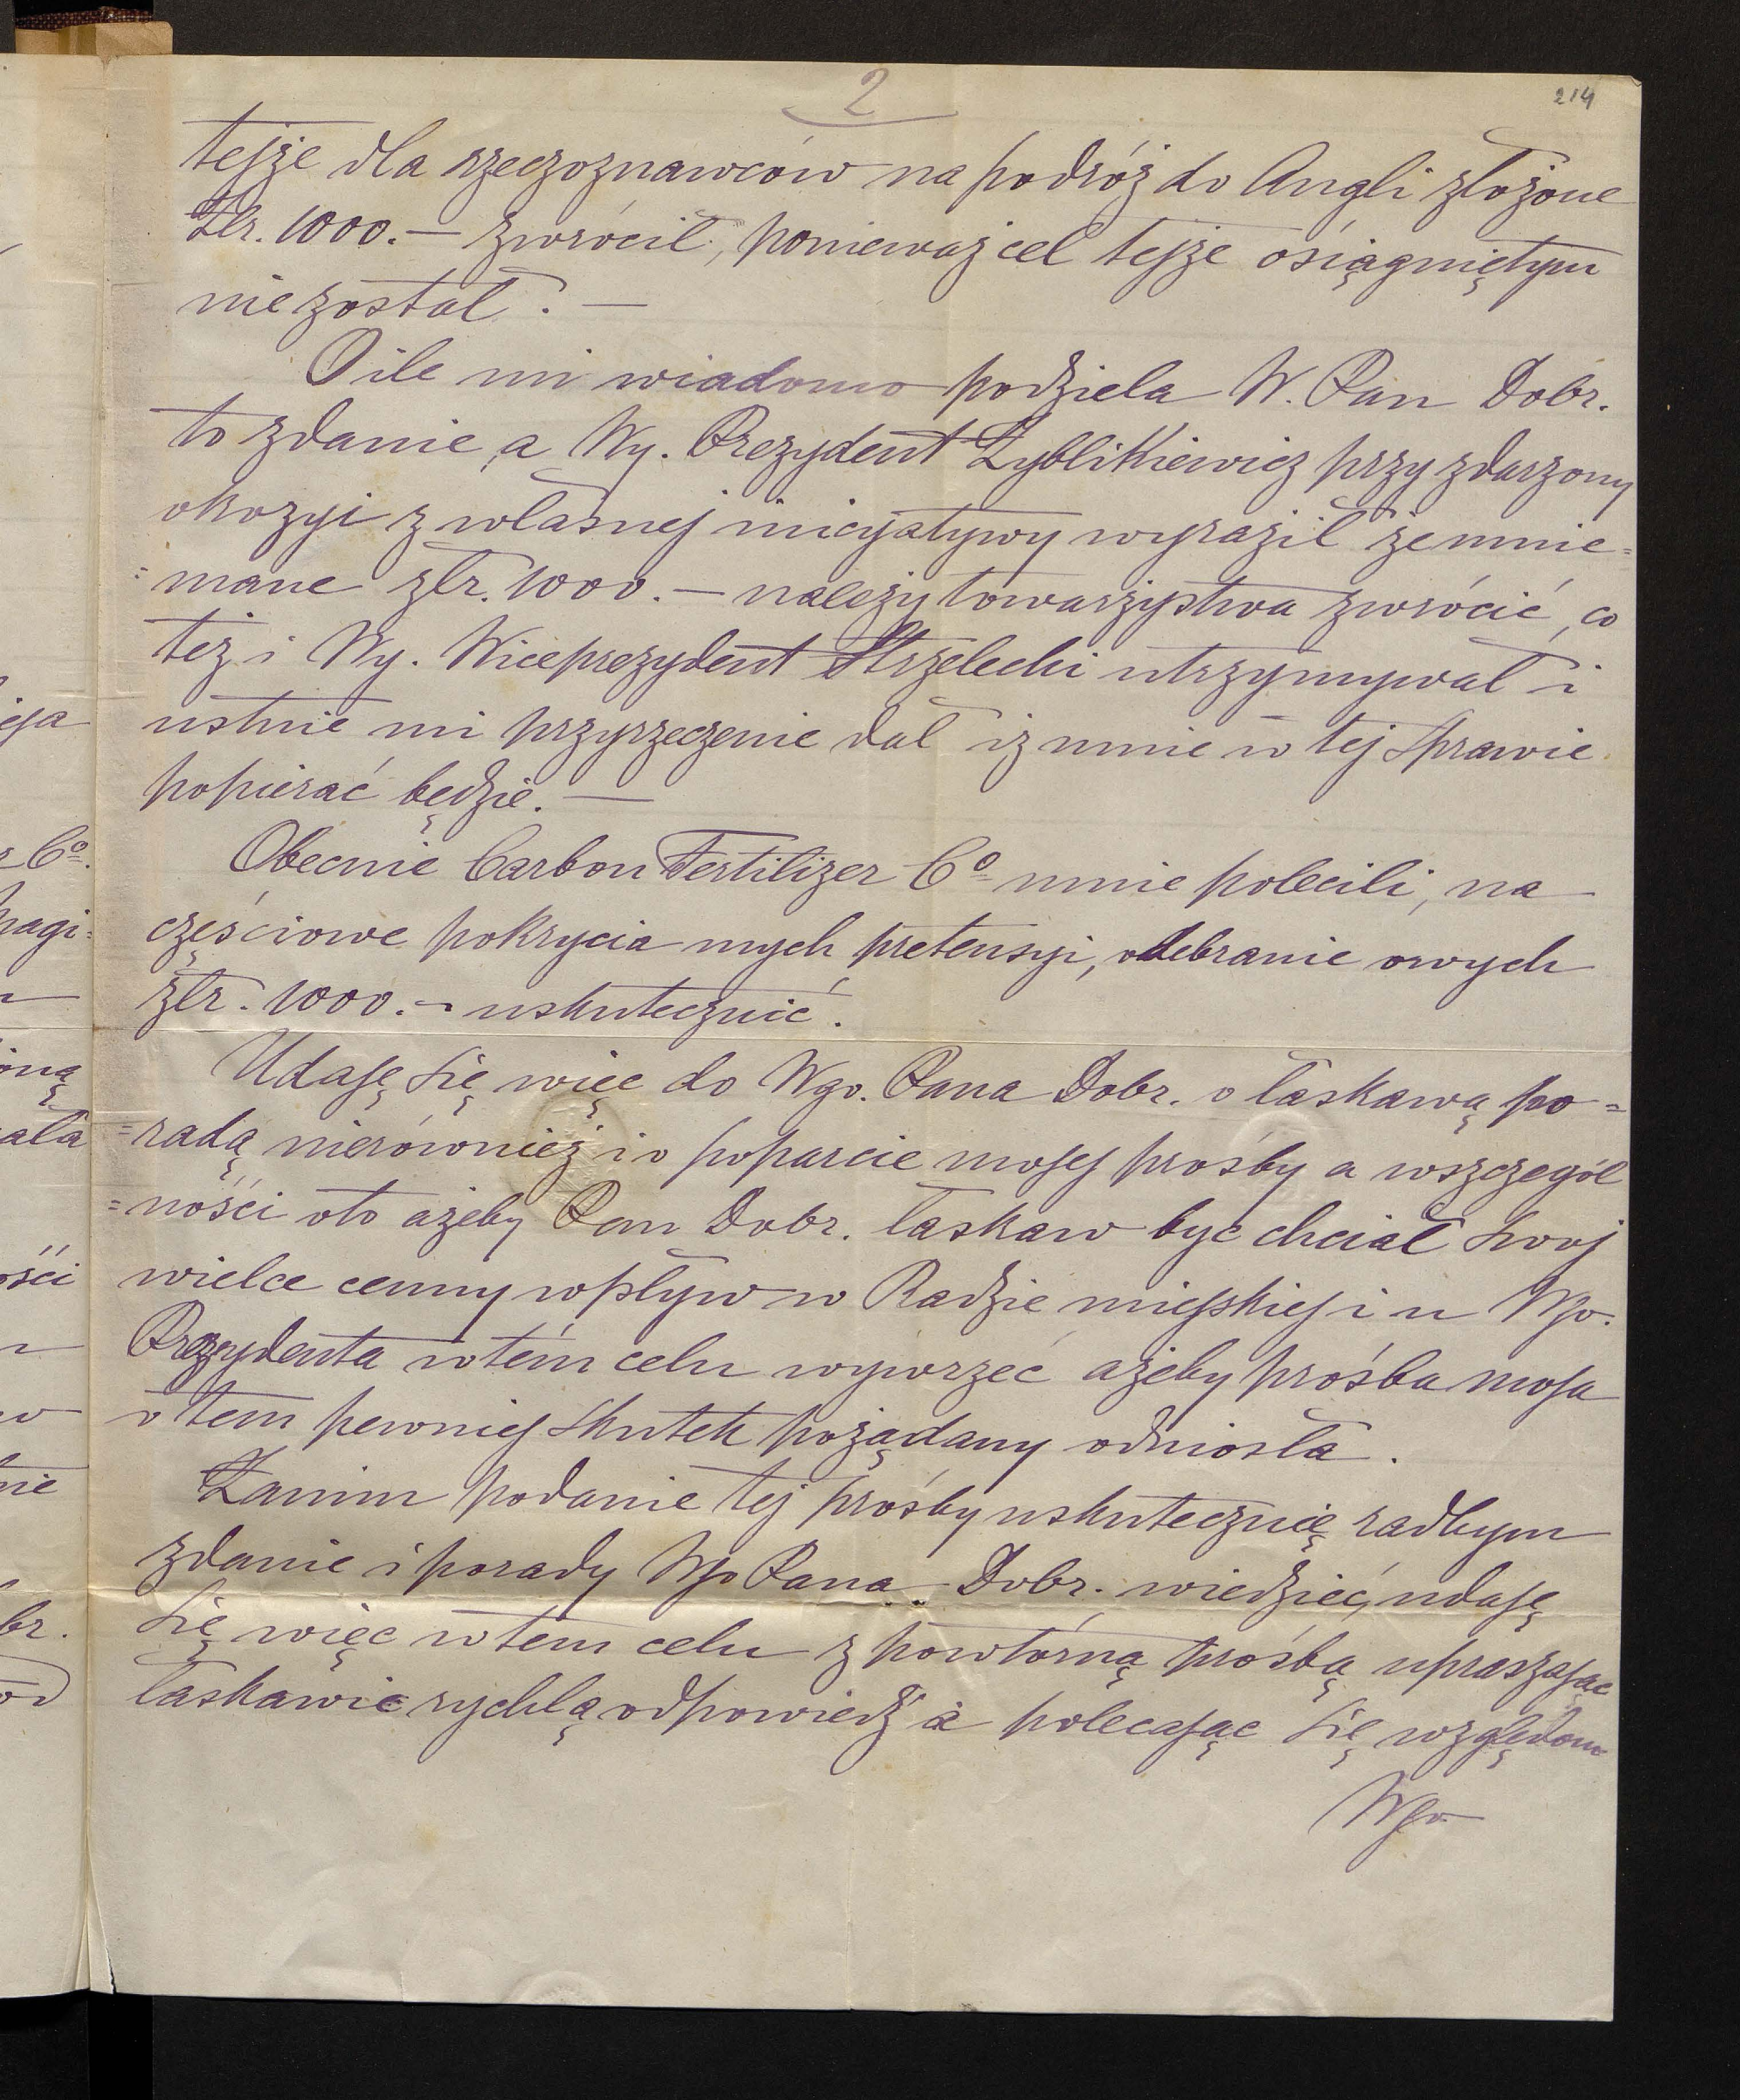 2
214
tejże dla rzeczoznawców na podróż do Angli złożone
Złr. 1000. — zwrócił, ponieważ cel tejże osiągniętym
nie został. —
O ile mi wiadomo podziela W. Pan Dobr.
to zdanie, a Wy. Prezydent Zyblikiewicz przy zdarzony
okozyi z własnej inicyjatywy wyraził że mnie=
=mane złr. 1000. — należy towarzystwa zwrócić, co
też i Wy. Wiceprezydent Strzelecki utrzymywał i
ustnie mi przyrzeczenie dał iż mnie w tej sprawie
popierać będzie. —
Obecnie Carbon Fertilizer Co mnie polecili, na
częściowe pokrycia mych pretensyi, odebranie owych
złr. 1000. - uskutecznić.
Udaję się więc do Wgo. Pana Dobr. o łaskawą po=
=radą nierównież i o poparcie mojej prośby a wszczegól
=ności oto ażeby Pan Dobr. łaskaw być chciał swoj
wielce cenny wpływ w Radzie miejskiej i u Wgo.
Prezydenta w tém celu wywrzeć ażeby prośba moja
o tem pewniej skutek pożądany odniosła.
Zanim podanie tej prośby uskutecznię radbym
zdanie i porady Wgo Pana Dobr. wiedzieć, udaję
się więc w tem celu z powtórną prośbą upraszając
łaskawie rychłą odpowiedź à polecając się względom
Wgo